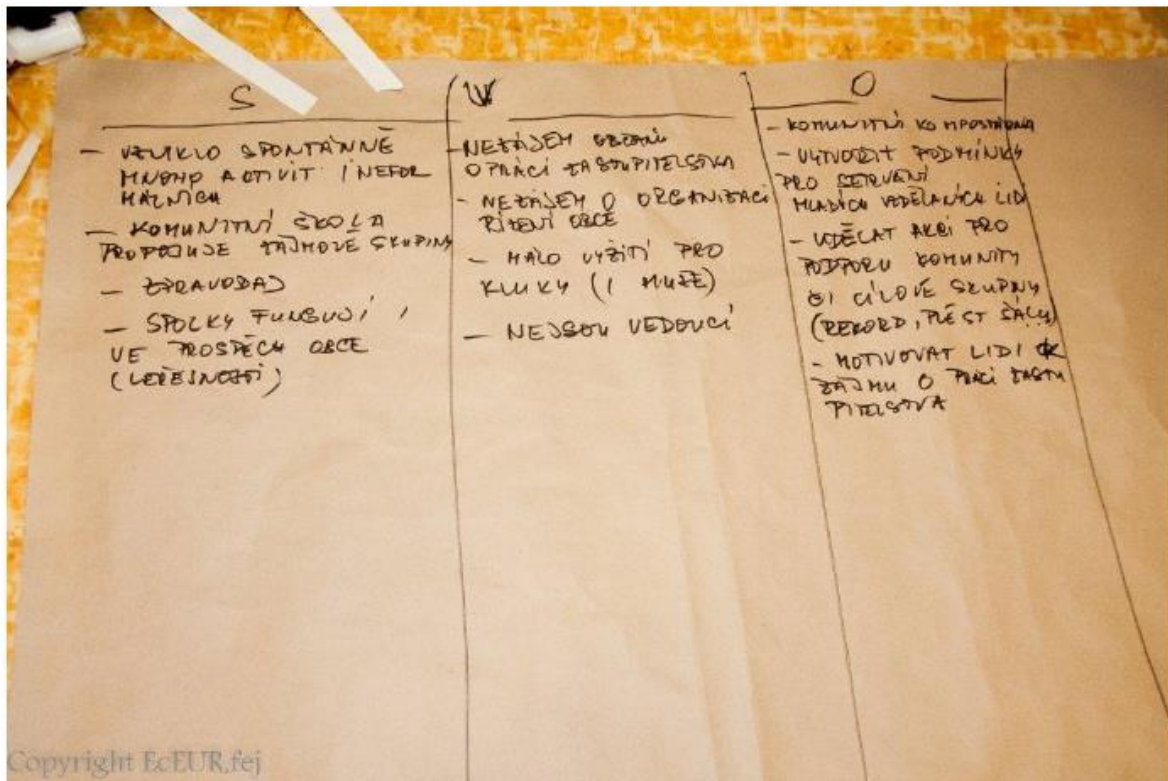 S
— VZNIKLO SPONTÁNNĚ
MNOHO AKTIVIT I NEFOR
MÁLNÍCH
— KOMUNITNÍ ŠKOLA
PROPOJUJE ZÁJMOVÉ SKUPINY
— ZPRAVODAJ
— SPOLKY FUNGUJÍ I
VE PROSPĚCH OBCE
W
— NEZÁJEM OBČANŮ
O PRÁCI ZASTUPITELSTVA
— NEZÁJEM O ORGANIZACI
ŘÍZENÍ OBCE
— MÁLO VYŽITÍ PRO
KLUKY (I MUŽE)
— NEJSOU VEDOUCÍ
O
— KOMUNITNÍ KOMPOSTÁRNA
— VYTVOŘIT PODMÍNKY
PRO SETRVÁNÍ
MLADÝCH VZDĚLANÝCH LIDÍ
— UDĚLAT AKCI PRO
PODPORU KOMUNITY
ČI CÍLOVÉ SKUPINY
(REKORD, PLÉST ŠÁLU)
— MOTIVOVAT LIDI K
ZÁJMU O PRÁCI ZASTU
PITELSTVA
Copyright EcEUR,fej